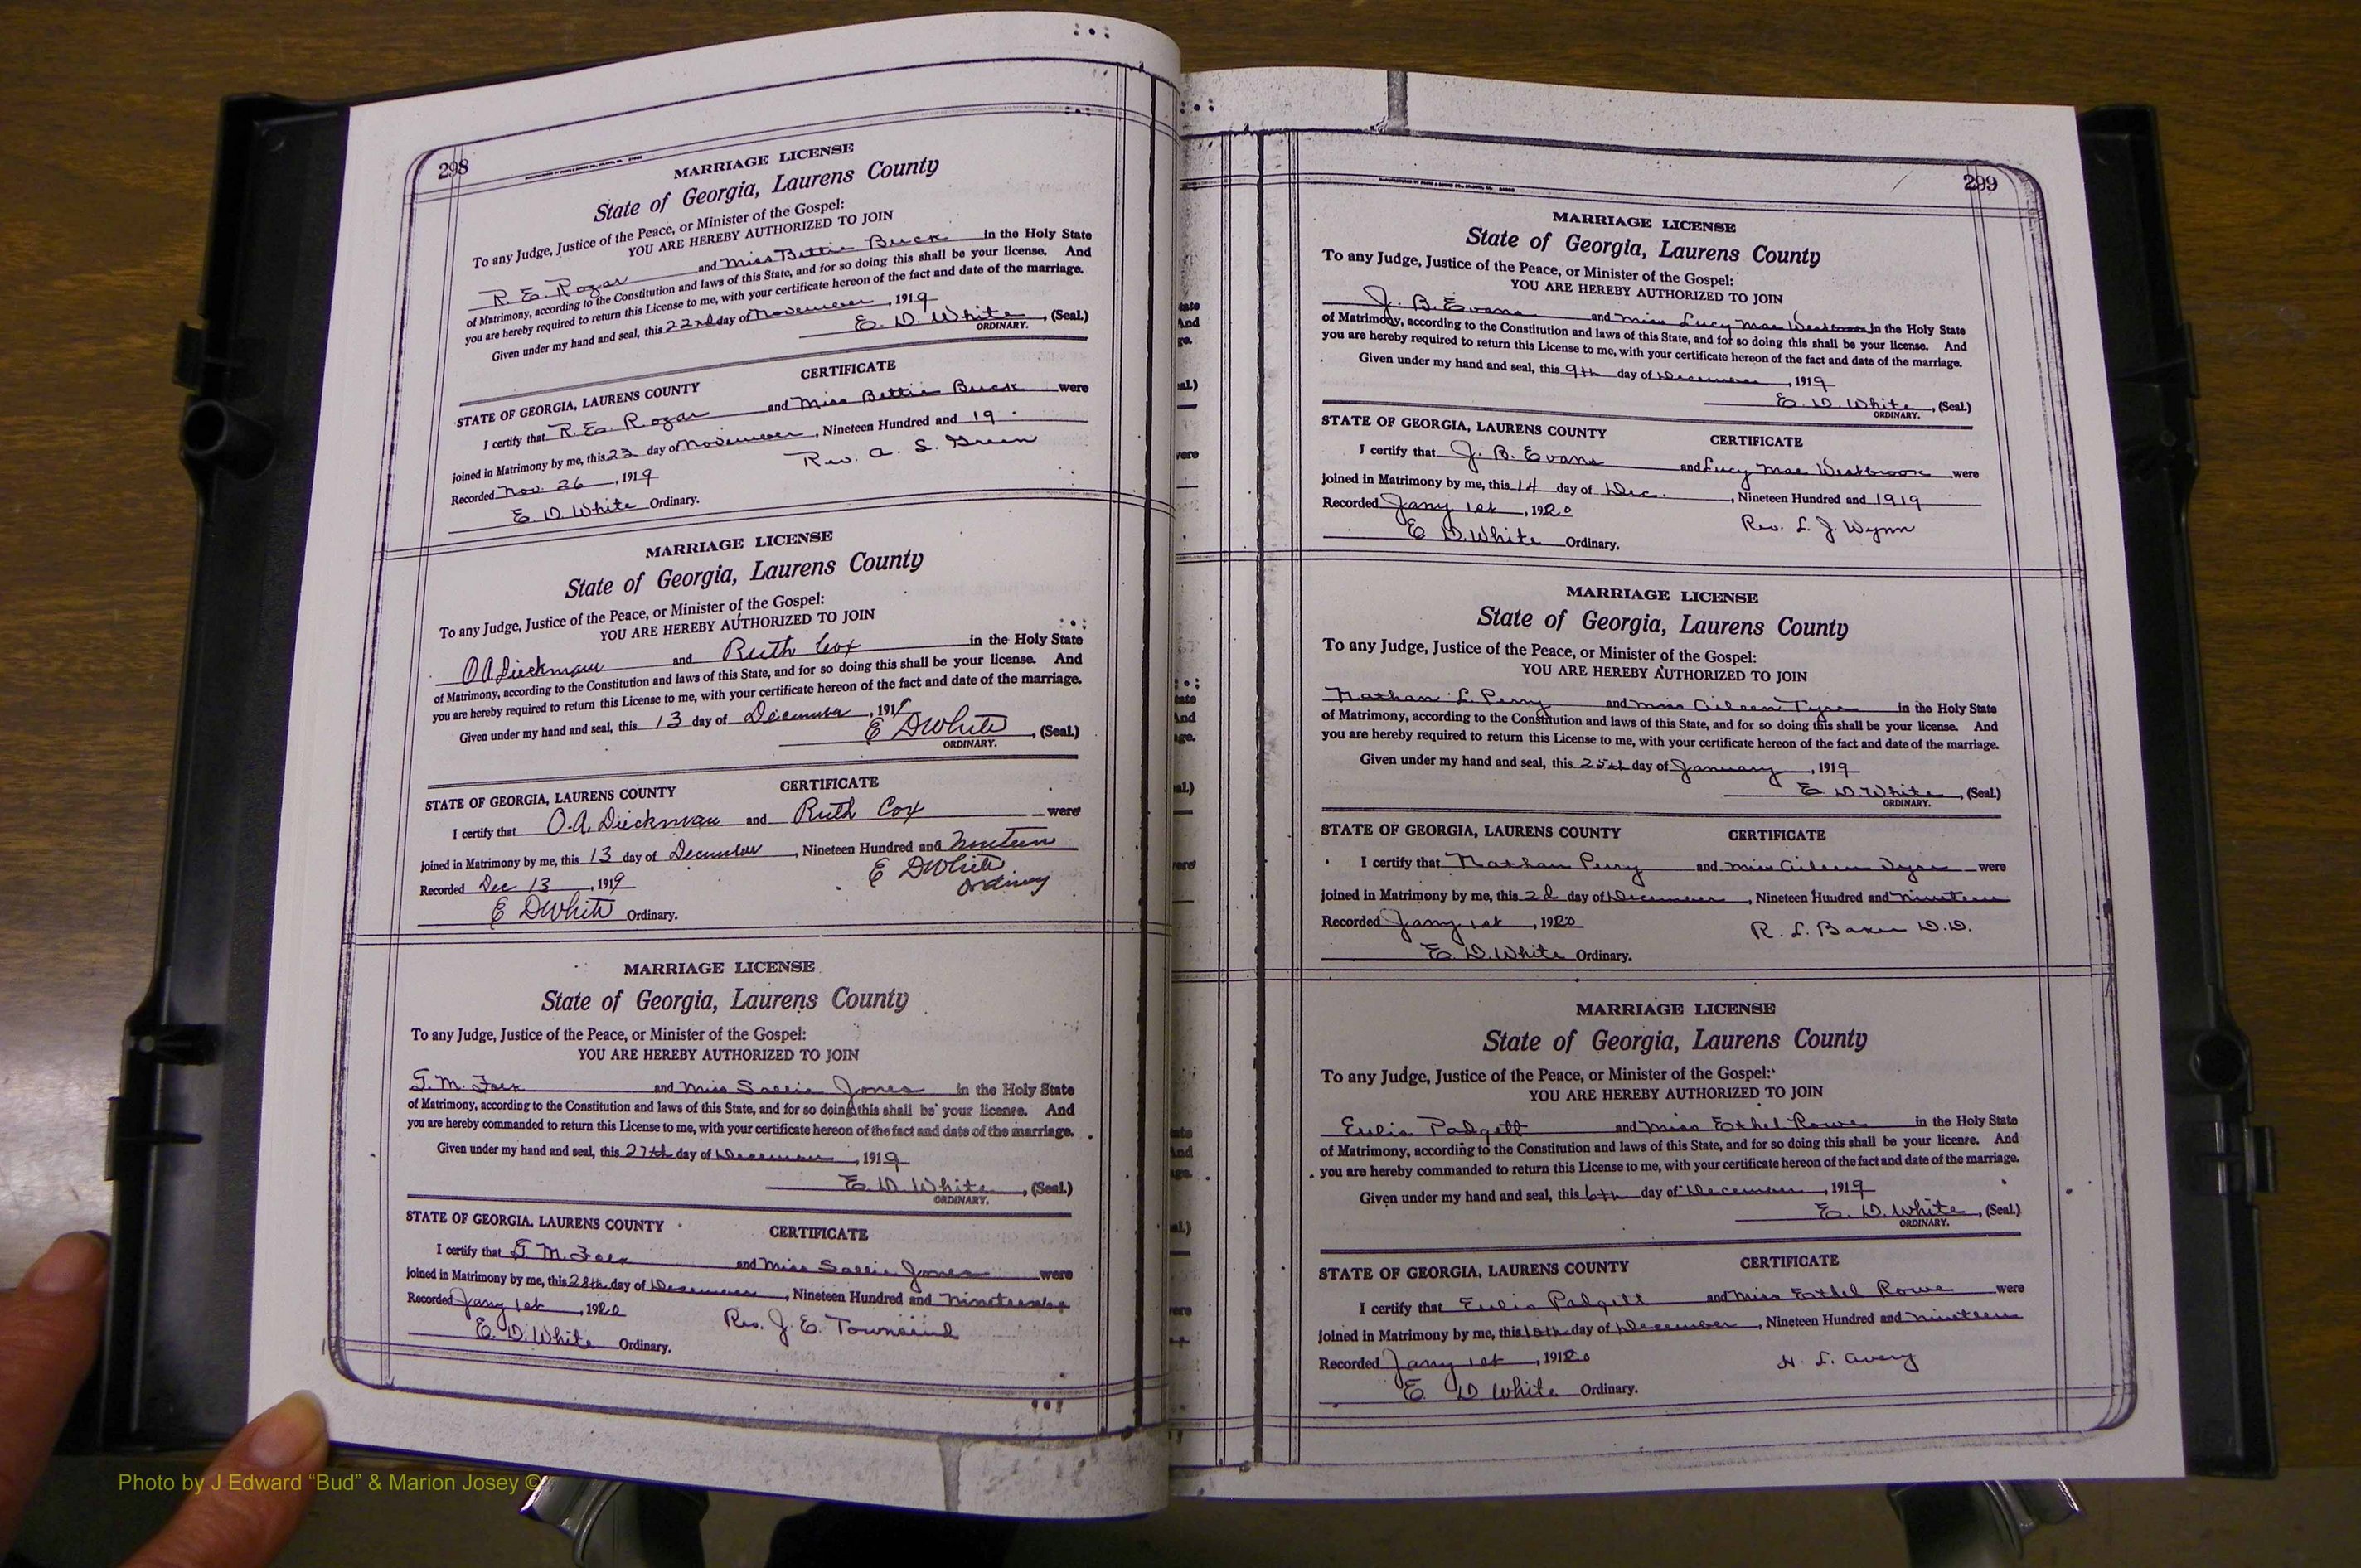 298
MARRIAGE LICENSE
State of Georgia, Laurens County
To any Judge, Justice of the Peace, or Minister of the Gospel:
YOU ARE HEREBY AUTHORIZED TO JOIN
R. E. Rozar and Miss Bettie Buck in the Holy State
of Matrimony, according to the Constitution and laws of this State, and for so doing this shall be your license. And
you are hereby required to return this License to me, with your certificate hereon of the fact and date of the marriage.
Given under my hand and seal, this 22nd day of November, 1919
E. D. White, (Seal.)
ORDINARY.
CERTIFICATE
STATE OF GEORGIA, LAURENS COUNTY
I certify that R. E. Rozar and Miss Bettie Buck were
joined in Matrimony by me, this 23 day of November, Nineteen Hundred and 19.
Rev. A. S. Green
Recorded Nov. 26, 1919
E. D. White Ordinary.
MARRIAGE LICENSE
State of Georgia, Laurens County
To any Judge, Justice of the Peace, or Minister of the Gospel:
YOU ARE HEREBY AUTHORIZED TO JOIN
O A Dieckman and Ruth Cox in the Holy State
of Matrimony, according to the Constitution and laws of this State, and for so doing this shall be your license. And
you are hereby required to return this License to me, with your certificate hereon of the fact and date of the marriage.
Given under my hand and seal, this 13 day of December, 191
E D White, (Seal.)
ORDINARY.
CERTIFICATE
STATE OF GEORGIA, LAURENS COUNTY
I certify that O. A. Dieckman and Ruth Cox were
joined in Matrimony by me, this 13 day of December, Nineteen Hundred and Nineteen
E D White
Ordinary
Recorded Dec 13, 1919
E D White Ordinary.
MARRIAGE LICENSE
State of Georgia, Laurens County
To any Judge, Justice of the Peace, or Minister of the Gospel:
YOU ARE HEREBY AUTHORIZED TO JOIN
M. and Miss Sallie Jones in the Holy State
of Matrimony, according to the Constitution and laws of this State, and for so doing this shall be your license. And
you are hereby commanded to return this License to me, with your certificate hereon of the fact and date of the marriage.
Given under my hand and seal, this 27th day of December, 1919
E. D. White, (Seal.)
ORDINARY.
STATE OF GEORGIA. LAURENS COUNTY
CERTIFICATE
I certify that M. and Miss Sallie Jones were
joined in Matrimony by me, this 28th day of December, Nineteen Hundred and Nineteen
Recorded Jany 1st, 1920
Rev. J. E. Townsend
E. D. White Ordinary.
299
MARRIAGE LICENSE
State of Georgia, Laurens County
To any Judge, Justice of the Peace, or Minister of the Gospel:
YOU ARE HEREBY AUTHORIZED TO JOIN
J. B. Evans and Miss Lucy Mae Westbrook in the Holy State
of Matrimony, according to the Constitution and laws of this State, and for so doing this shall be your license. And
you are hereby required to return this License to me, with your certificate hereon of the fact and date of the marriage.
Given under my hand and seal, this 9th day of December, 1919
E. D. White, (Seal.)
ORDINARY.
STATE OF GEORGIA, LAURENS COUNTY
CERTIFICATE
I certify that J. B. Evans and Lucy Mae Westbrook were
joined in Matrimony by me, this 14 day of Dec., Nineteen Hundred and 1919
Recorded Jany 1st, 1920
Rev. L. J. Wynn
E D. White Ordinary.
MARRIAGE LICENSE
State of Georgia, Laurens County
To any Judge, Justice of the Peace, or Minister of the Gospel:
YOU ARE HEREBY AUTHORIZED TO JOIN
Nathan L. Perry and Miss Aileen Tyre in the Holy State
of Matrimony, according to the Constitution and laws of this State, and for so doing this shall be your license. And
you are hereby required to return this License to me, with your certificate hereon of the fact and date of the marriage.
Given under my hand and seal, this 25th day of January, 1919
E D. White, (Seal.)
ORDINARY.
STATE OF GEORGIA, LAURENS COUNTY
CERTIFICATE
I certify that Nathan Perry and Miss Aileen Tyre were
joined in Matrimony by me, this 2d day of December, Nineteen Hundred and Nineteen
Recorded Jany 1st, 1920
R. L. Baker D.D.
E. D. White Ordinary.
MARRIAGE LICENSE
State of Georgia, Laurens County
To any Judge, Justice of the Peace, or Minister of the Gospel:
YOU ARE HEREBY AUTHORIZED TO JOIN
Eulis Padgett and Miss Ethel Rowe in the Holy State
of Matrimony, according to the Constitution and laws of this State, and for so doing this shall be your license. And
you are hereby commanded to return this License to me, with your certificate hereon of the fact and date of the marriage.
Given under my hand and seal, this 6th day of December, 1919
E. D. White, (Seal.)
ORDINARY.
STATE OF GEORGIA, LAURENS COUNTY
CERTIFICATE
I certify that Eulis Padgett and Miss Ethel Rowe were
joined in Matrimony by me, this 10th day of December, Nineteen Hundred and Nineteen
Recorded Jany 1st, 1920
H. L. Avery
E D White Ordinary.
Photo by J Edward “Bud” & Marion Josey ©